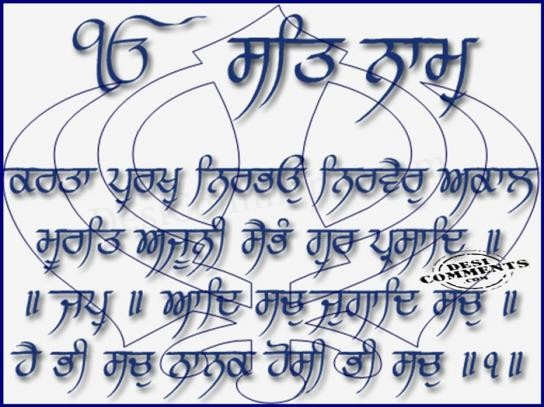 ੴ ਸਤਿ ਨਾਮੁ
ਕਰਤਾ ਪੁਰਖੁ ਨਿਰਭਉ ਨਿਰਵੈਰੁ ਅਕਾਲ
ਮੂਰਤਿ ਅਜੂਨੀ ਸੈਭੰ ਗੁਰ ਪ੍ਰਸਾਦਿ ॥
॥ ਜਪੁ ॥ ਆਦਿ ਸਚੁ ਜੁਗਾਦਿ ਸਚੁ ॥
ਹੈ ਭੀ ਸਚੁ ਨਾਨਕ ਹੋਸੀ ਭੀ ਸਚੁ ॥੧॥
DESI
COMMENTS
.COM